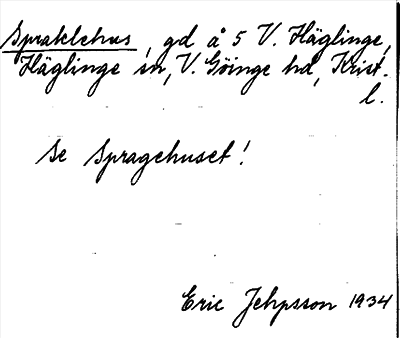 Spraklehus, gd å 5 V. Häglinge,
Häglinge sn, V. Göinge hd, Krist.
l.
Se Spragehuset!
Eric Jehpsson 1934